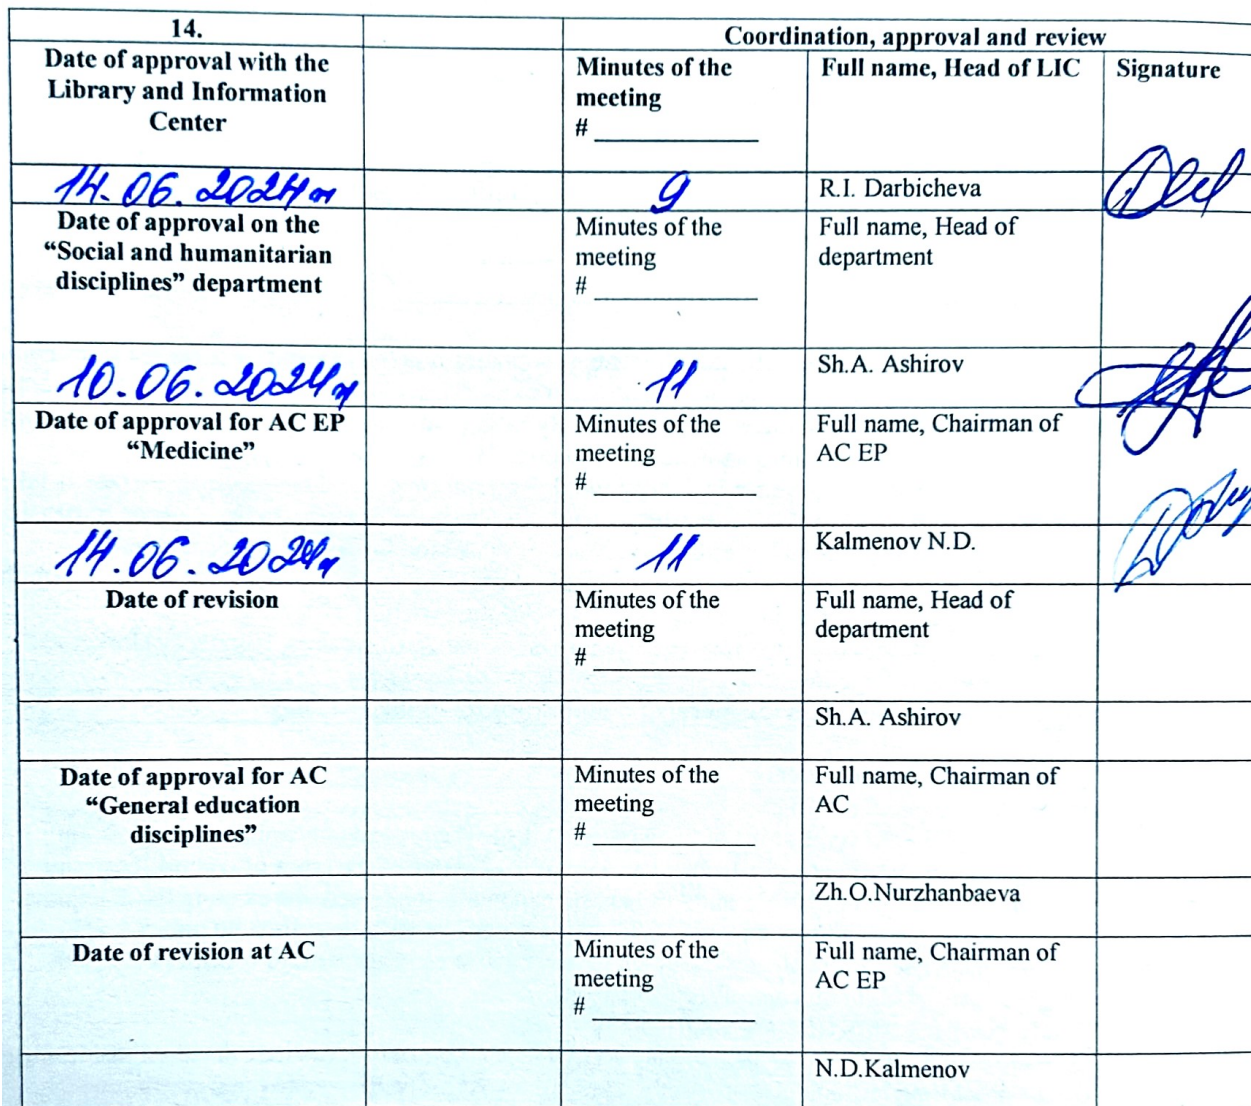 14.
Coordination, approval and review
Date of approval with the
Library and Information
Center
Minutes of the
meeting
# ____________
Full name, Head of LIC
Signature
14.06.2024г
9
R.I. Darbicheva
Date of approval on the
“Social and humanitarian
disciplines” department
Minutes of the
meeting
# ____________
Full name, Head of
department
10.06.2024г
11
Sh.A. Ashirov
Date of approval for AC EP
“Medicine”
Minutes of the
meeting
# ____________
Full name, Chairman of
AC EP
14.06.2024г
11
Kalmenov N.D.
Date of revision
Minutes of the
meeting
# ____________
Full name, Head of
department
Sh.A. Ashirov
Date of approval for AC
“General education
disciplines”
Minutes of the
meeting
# ____________
Full name, Chairman of
AC
Zh.O.Nurzhanbaeva
Date of revision at AC
Minutes of the
meeting
# ____________
Full name, Chairman of
AC EP
N.D.Kalmenov